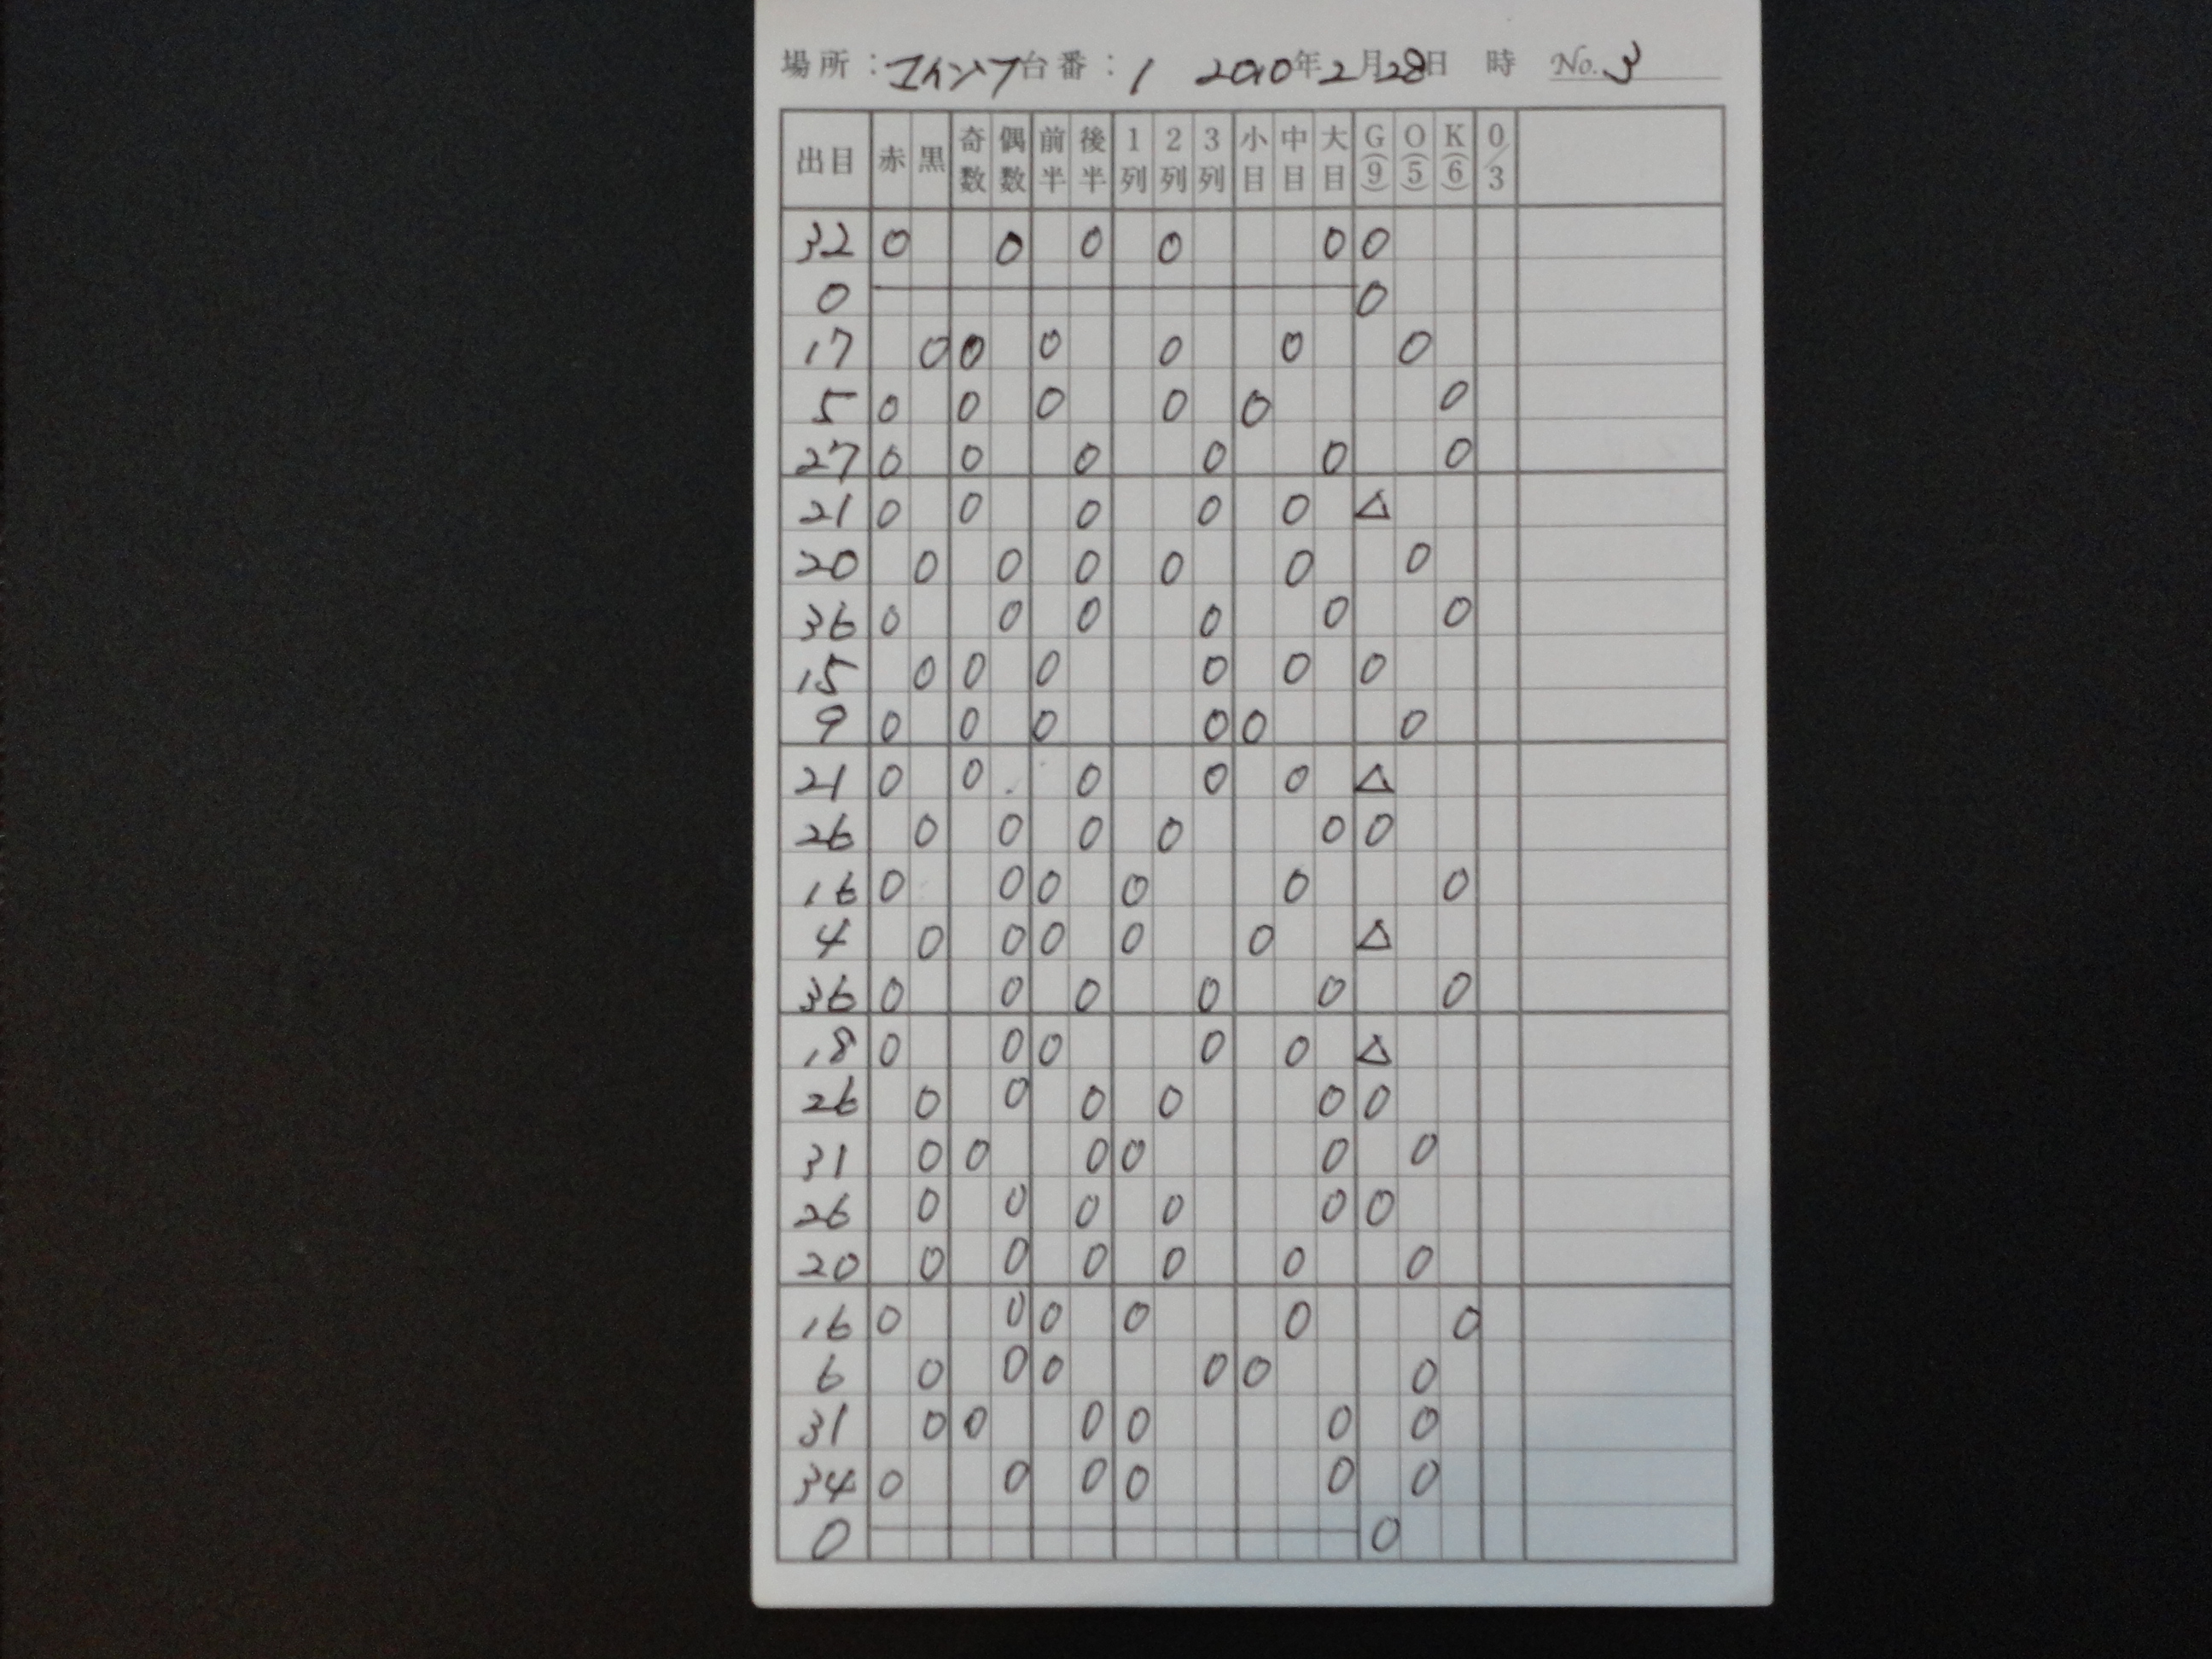 場所：エインフ台番：1 2010年2月28日 時 No.3
出目 赤 黒 奇数 偶数 前半 後半 1列 2列 3列 小目 中目 大目 G(9) O(5) K(6) 0/3
32 0 0 0 0 0 0
0 0
17 0 0 0 0 0 0
5 0 0 0 0 0 0
27 0 0 0 0 0 0
21 0 0 0 0 0 △
20 0 0 0 0 0 0
36 0 0 0 0 0 0
15 0 0 0 0 0 0
9 0 0 0 0 0 0
21 0 0 0 0 0 △
26 0 0 0 0 0 0
16 0 0 0 0 0 0
4 0 0 0 0 0 △
36 0 0 0 0 0 0
18 0 0 0 0 0 △
26 0 0 0 0 0 0
31 0 0 0 0 0 0
26 0 0 0 0 0 0
20 0 0 0 0 0 0
16 0 0 0 0 0 0
6 0 0 0 0 0 0
31 0 0 0 0 0 0
34 0 0 0 0 0 0
0 0